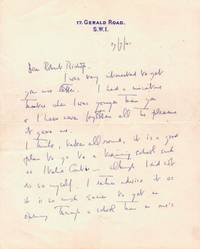 17, GERALD ROAD.
S.W.1.
Dear
I was very interested to get
your letter. I had a miniature
theatre when I was younger than you
& I have never forgotten all the pleasure
it gave me.
I think, taken all round, it is a good
plan to go to a training school such
as Italia Conti — although I did not
do so myself. I
it is so much easier to get an
opening through a school than on one's